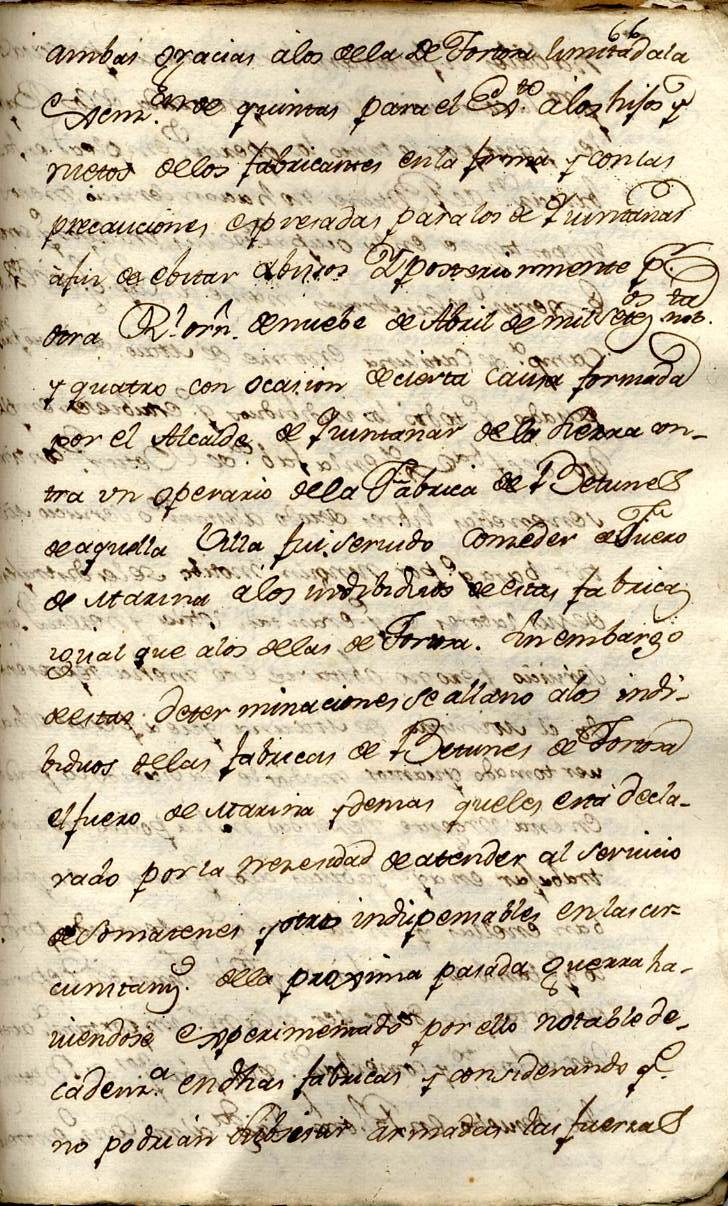 66
ambas gracias alos della de Tortosa limitada la
Exenz.ⁿ de quintas para el Ex.to a los hijos y
nietos dellos fabricantes enla forma y con las
precauciones expresadas para los de Quintanar
afin de ebitar abusos Y posteriormente pʳ
otra Rˡ orñ. de nuebe de Abril de mil setez.tos nob.ta
y quatro con ocasion de cierta causa formada
por el Alcalde de Quintanar de la Sierra con-
tra vn operario della Fabrica de Betunes
de aquella Villa fui servido conceder el Fuero
de Marina a los indibiduos de estas fabricas
igual que alos dellas de Tortosa. Sin embargo
de estas determinaciones se allano alos indi-
biduos de las fabricas de Betunes de Tortosa
el fuero de Marina y demas que les está decla-
rado por la nezesidad de atender al servicio
de Somatenes y otros indispensables en las cir-
cunstan.s della proxima pasada guerra ha-
viendose experimentado por ello notable de-
cadenz.a en dhas fabricas y considerando q.e
no podrian subsistir armadas las fuerzas